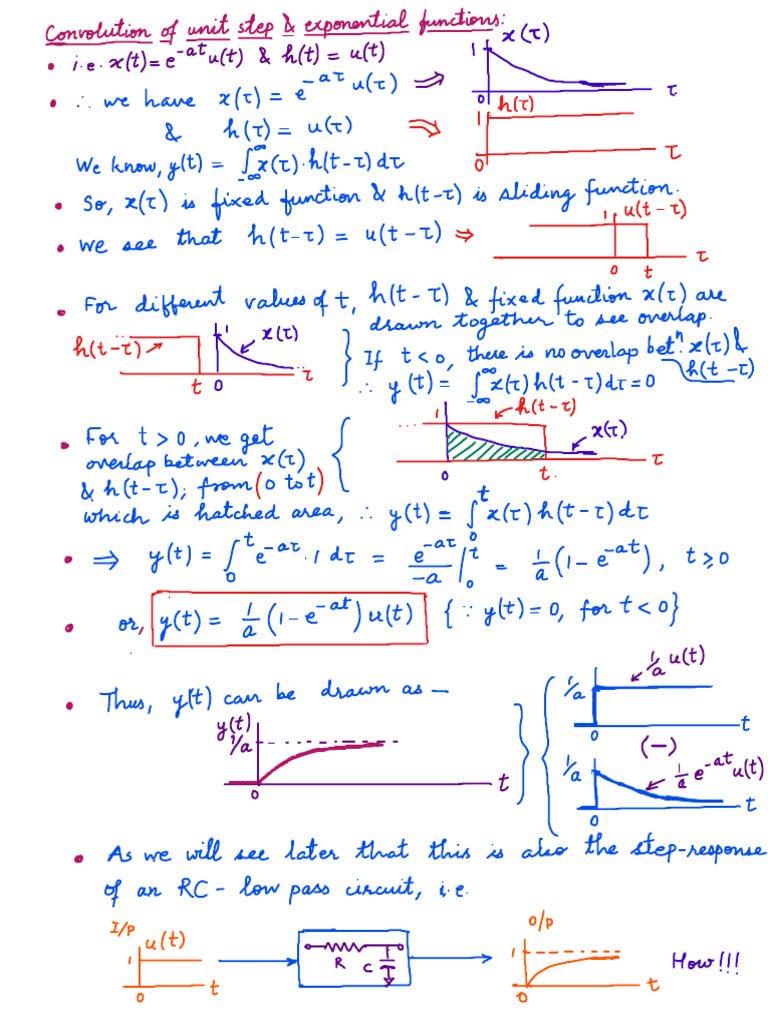 Convolution of unit step & exponential functions:
• i.e. x(t) = e^{-at} u(t) & h(t) = u(t)
x(τ)
1
0
τ
• ∴ we have x(τ) = e^{-aτ} u(τ) ⇒
& h(τ) = u(τ) ⇒
h(τ)
1
0
τ
We know, y(t) = ∫_{-∞}^{∞} x(τ)·h(t-τ) dτ
• So, x(τ) is fixed function & h(t-τ) is sliding function.
• We see that h(t-τ) = u(t-τ) ⇒
1 u(t-τ)
0 t τ
• For different values of t, h(t-τ) & fixed function x(τ) are
drawn together to see overlap.
h(t-τ) →
1 x(τ)
t 0 τ
If t<0, there is no overlap betⁿ. x(τ) &
h(t-τ)
∴ y(t) = ∫_{-∞}^{∞} x(τ) h(t-τ) dτ = 0
• For t>0, we get
overlap between x(τ)
& h(t-τ); from (0 to t)
which is hatched area, ∴ y(t) = ∫_0^t x(τ) h(t-τ) dτ
1 h(t-τ)
x(τ)
0 t. τ
• ⇒ y(t) = ∫_0^t e^{-aτ}·1 dτ = e^{-aτ}/-a |_0^t = 1/a (1-e^{-at}), t ≥ 0
• or, y(t) = 1/a (1-e^{-at}) u(t) {∵ y(t) = 0, for t<0}
• Thus, y(t) can be drawn as —
y(t)
1/a
0 t
1/a u(t)
1/a
0 t
(—)
1/a
1/a e^{-at} u(t)
0 t
• As we will see later that this is also the step-response
of an RC - low pass circuit, i.e.
I/P
u(t)
1
0 t
R C
O/P
1
0 t
How!!!